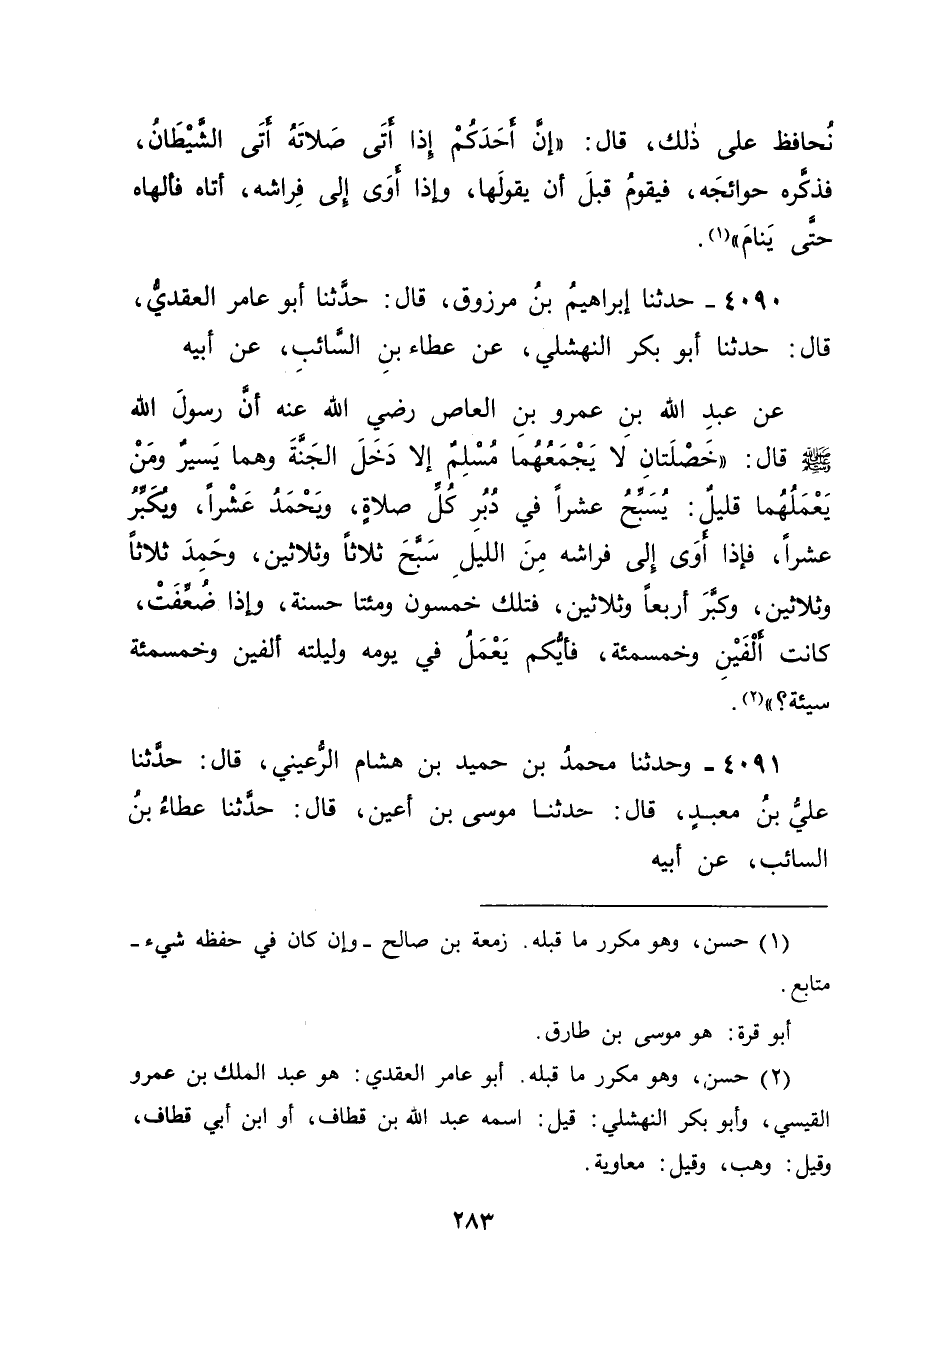 نُحافظ على ذٰلك، قال: «إنَّ أَحَدَكُمْ إِذا أَتَى صَلاتَهُ أَتَى الشَّيْطَانُ،
فذكَّره حوائجَه، فيقومُ قبلَ أن يقولَها، وإذا أَوَى إِلى فِراشه، أتاه فألهاه
حتَّى يَنامَ»(١).
٤٠٩٠ ـ حدثنا إبراهيمُ بنُ مرزوق، قال: حدَّثنا أبو عامر العقديُّ،
قال: حدثنا أبو بكر النهشلي، عن عطاء بنِ السَّائبِ، عن أبيه
عن عبدِ الله بن عمرو بنِ العاص رضي الله عنه أنَّ رسولَ الله
ﷺ قال: «خَصْلَتانِ لا يَجْمَعُهُما مُسْلِمٌ إلا دَخَلَ الجَنَّةَ وهما يَسيرٌ ومَنْ
يَعْمَلُهُما قليلٌ: يُسَبِّحُ عشراً في دُبُرِ كُلِّ صلاةٍ، ويَحْمَدُ عَشْراً، ويُكَبِّرُ
عشراً، فإذا أَوَى إِلى فراشه مِنَ الليلِ سَبَّحَ ثلاثاً وثلاثين، وحَمِدَ ثلاثاً
وثلاثين، وكبَّرَ أربعاً وثلاثين، فتلك خمسون ومئتا حسنة، وإذا ضُعِّفَتْ،
كانت أَلْفَيْنِ وخمسمئة، فأيُّكم يَعْمَلُ في يومه وليلته ألفين وخمسمئة
سيئة؟»(٢).
٤٠٩١ ـ وحدثنا محمدُ بن حميد بن هشام الرُّعيني، قال: حدَّثنا
عليُّ بنُ معبدٍ، قال: حدثنا موسى بن أعين، قال: حدَّثنا عطاءُ بنُ
السائب، عن أبيه
(١) حسن، وهو مكرر ما قبله. زمعة بن صالح ـ وإن كان في حفظه شيء ـ
متابع.
أبو قرة: هو موسى بن طارق.
(٢) حسن، وهو مكرر ما قبله. أبو عامر العقدي: هو عبد الملك بن عمرو
القيسي، وأبو بكر النهشلي: قيل: اسمه عبد الله بن قطاف، أو ابن أبي قطاف،
وقيل: وهب، وقيل: معاوية.
٢٨٣